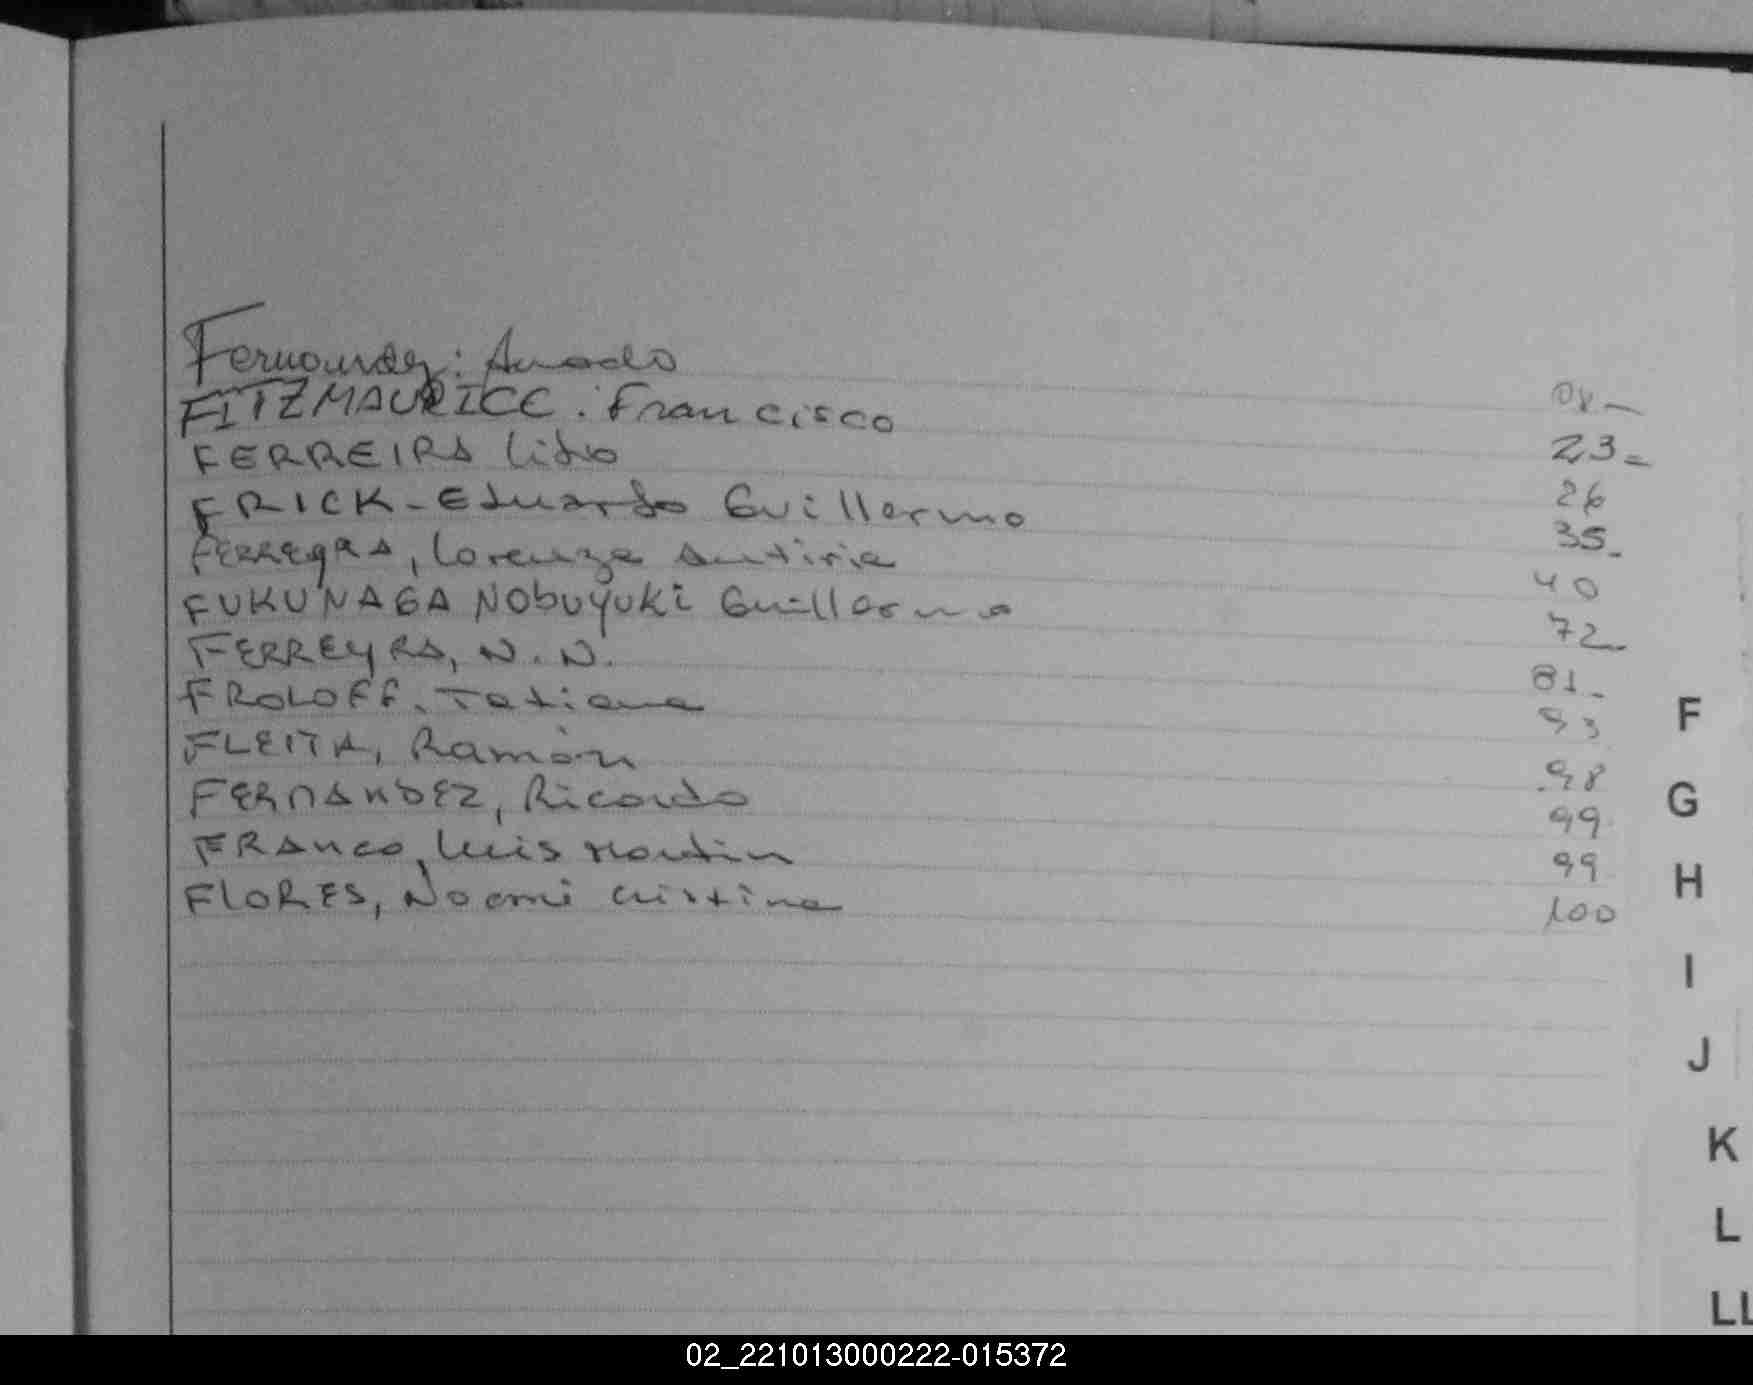 Fernandez: Amado 08-
FITZMAURICE. Francisco 23=
FERREIRA Lidio 26
FRICK-Eduardo Guillermo 35-
FERREYRA, Lorenza 40
FUKUNAGA NObuyuKi Guillermo 72-
FERREYRA, N. N. 81-
FROLOFF. Tatiana 93
FLEITA, Ramón 98
FERNANDEZ, Ricardo 99
FRANCO, Luis Martin 99
FLORES, Noemi Cristina 100
F
G
H
I
J
K
L
LL
02_221013000222-015372